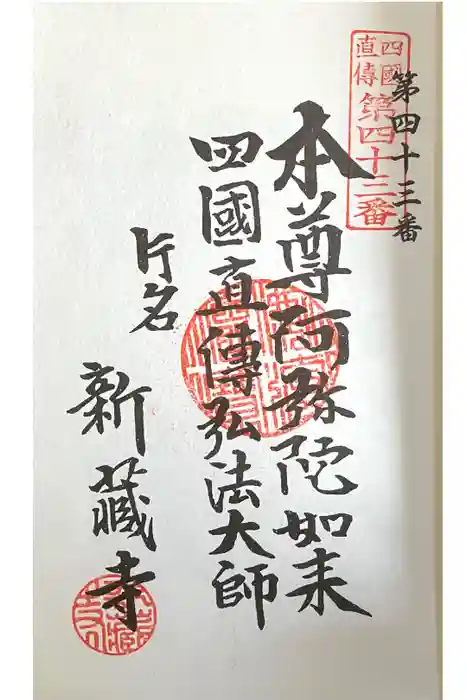 四國
直傳
第四十三番
第四十三番
本尊阿弥陀如来
四國直傳弘法大師
片名
新藏寺